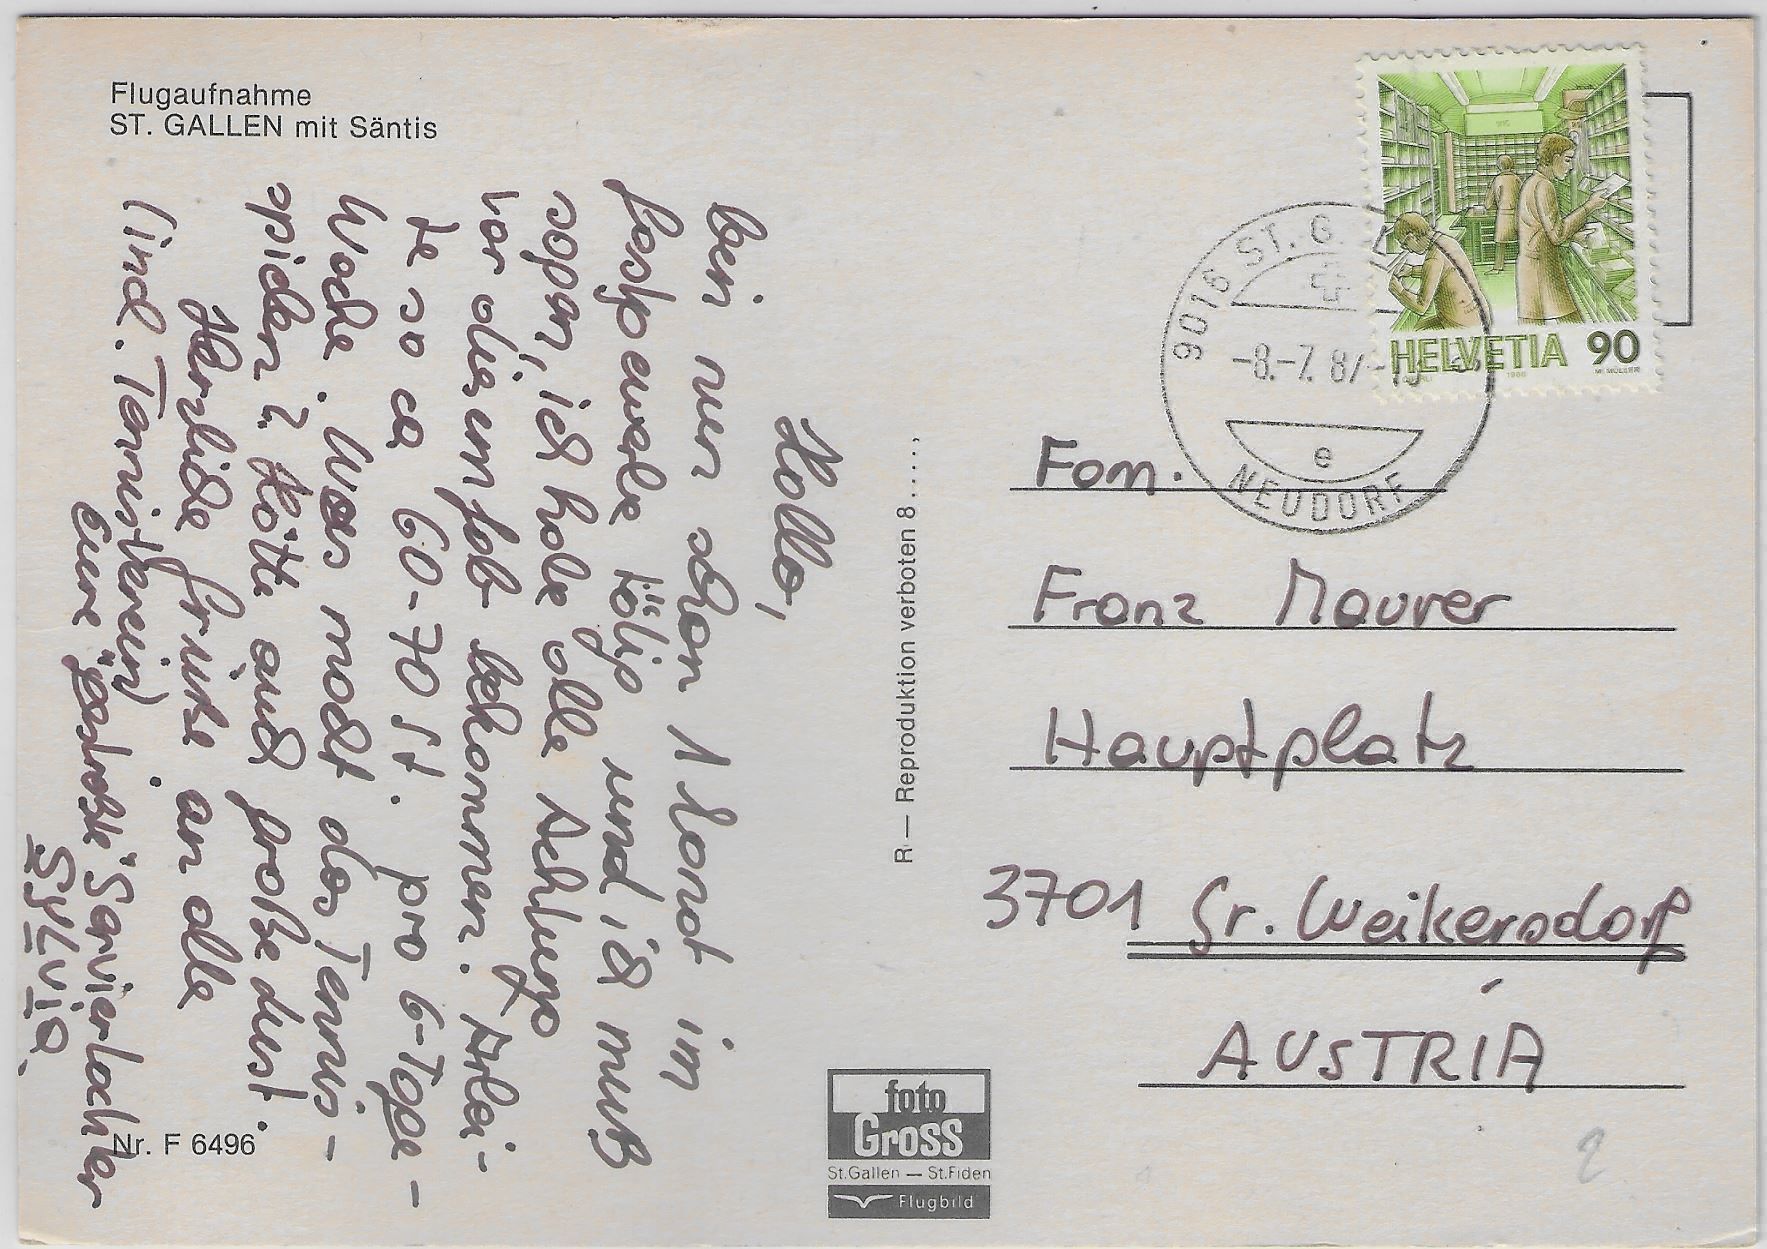 Flugaufnahme
ST. GALLEN mit Säntis
Hallo,
bin nun schon 1 Monat in
sogar, ich habe alle Achtung
vor diesem Job bekommen. Arbei-
te so ca 60-70 St. pro 6-Tage-
Woche. Was macht das Tennis-
spielen? Hätte auch große Lust.
Herzliche Grüße an alle
(incl. Tennisverein)
Eure "gestreßte" Serviertochter
SYLVIA
Nr. F 6496
R — Reproduktion verboten 8.....,
foto
Gross
St.Gallen — St.Fiden
Flugbild
9016 ST. G
-8.-7.87-
e
NEUDORF
HELVETIA 90
1986
M. MÜLLER
Fam.
Franz Maurer
Hauptplatz
3701 Gr. Weikersdorf
AUSTRIA
2